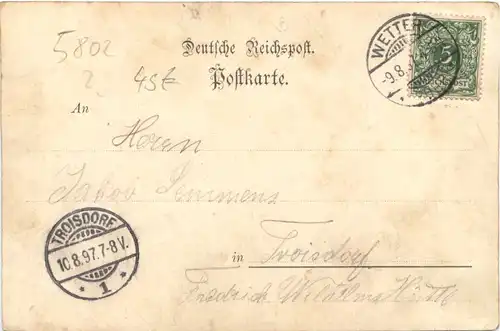 5802
2
45€
Deutsche Reichspost.
Postkarte.
WETTER
-9.8.
5
An
Herrn
Jakob Lemmens
TROISDORF
10.8.97.7-8 V.
* 1 *
in Troisdorf
Friedrich Wilhelms Hütte